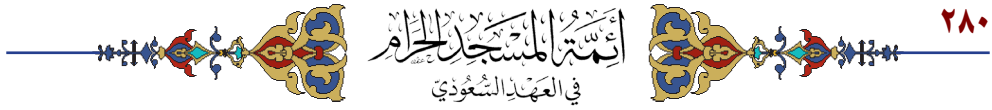 ٢٨٠
أَئِمَّةُ الْمَسْجِدِ الْحَرَامِ
فِي الْعَهْدِ السُّعُودِيِّ